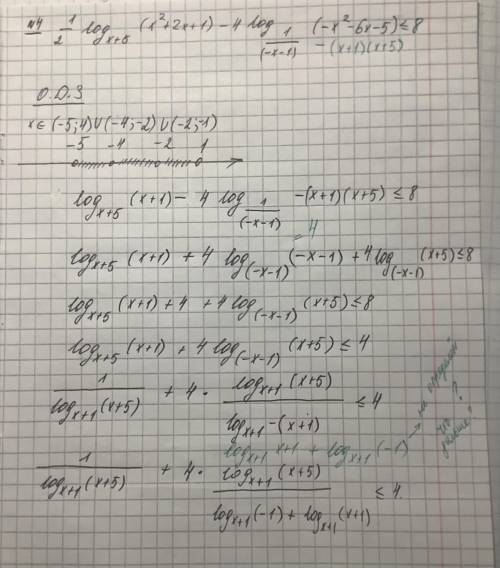 №4 1/2 log_{x+5} (x²+2x+1) - 4 log_{1/(-x-1)} (-x²-6x-5) ≤ 8
-(x+1)(x+5)
О.Д.З
x ∈ (-5; 4) ∪ (-4; -2) ∪ (-2; -1)
-5 -4 -2 1
log_{x+5} (x+1) - 4 log_{1/(-x-1)} -(x+1)(x+5) ≤ 8
= 4
log_{x+5} (x+1) + 4 log_{(-x-1)} (-x-1) + 4 log_{(-x-1)} (x+5) ≤ 8
log_{x+5} (x+1) + 4 + 4 log_{(-x-1)} (x+5) ≤ 8
log_{x+5} (x+1) + 4 log_{(-x-1)} (x+5) ≤ 4
1/(log_{x+1} (x+5)) + 4 · (log_{x+1} (x+5))/(log_{x+1} -(x+1)) ≤ 4
log_{x+1} x+1 + log_{x+1} (-1) → не
что дальше?
1/(log_{x+1} (x+5)) + 4 · (log_{x+1} (x+5))/(log_{x+1} (-1) + log_{x+1} (x+1)) ≤ 4.